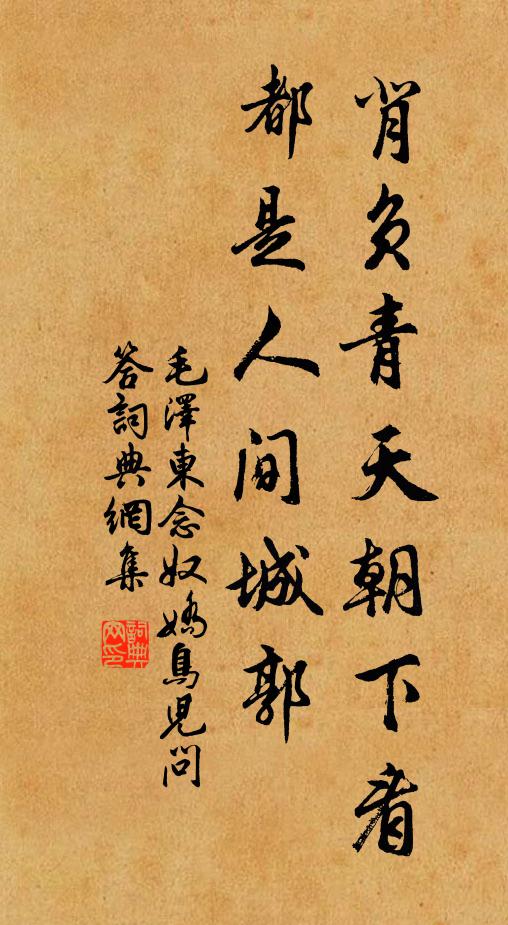 背負青天朝下看
都是人間城郭
毛澤東念奴嬌鳥兒問
答詞典網集
詞典
网印